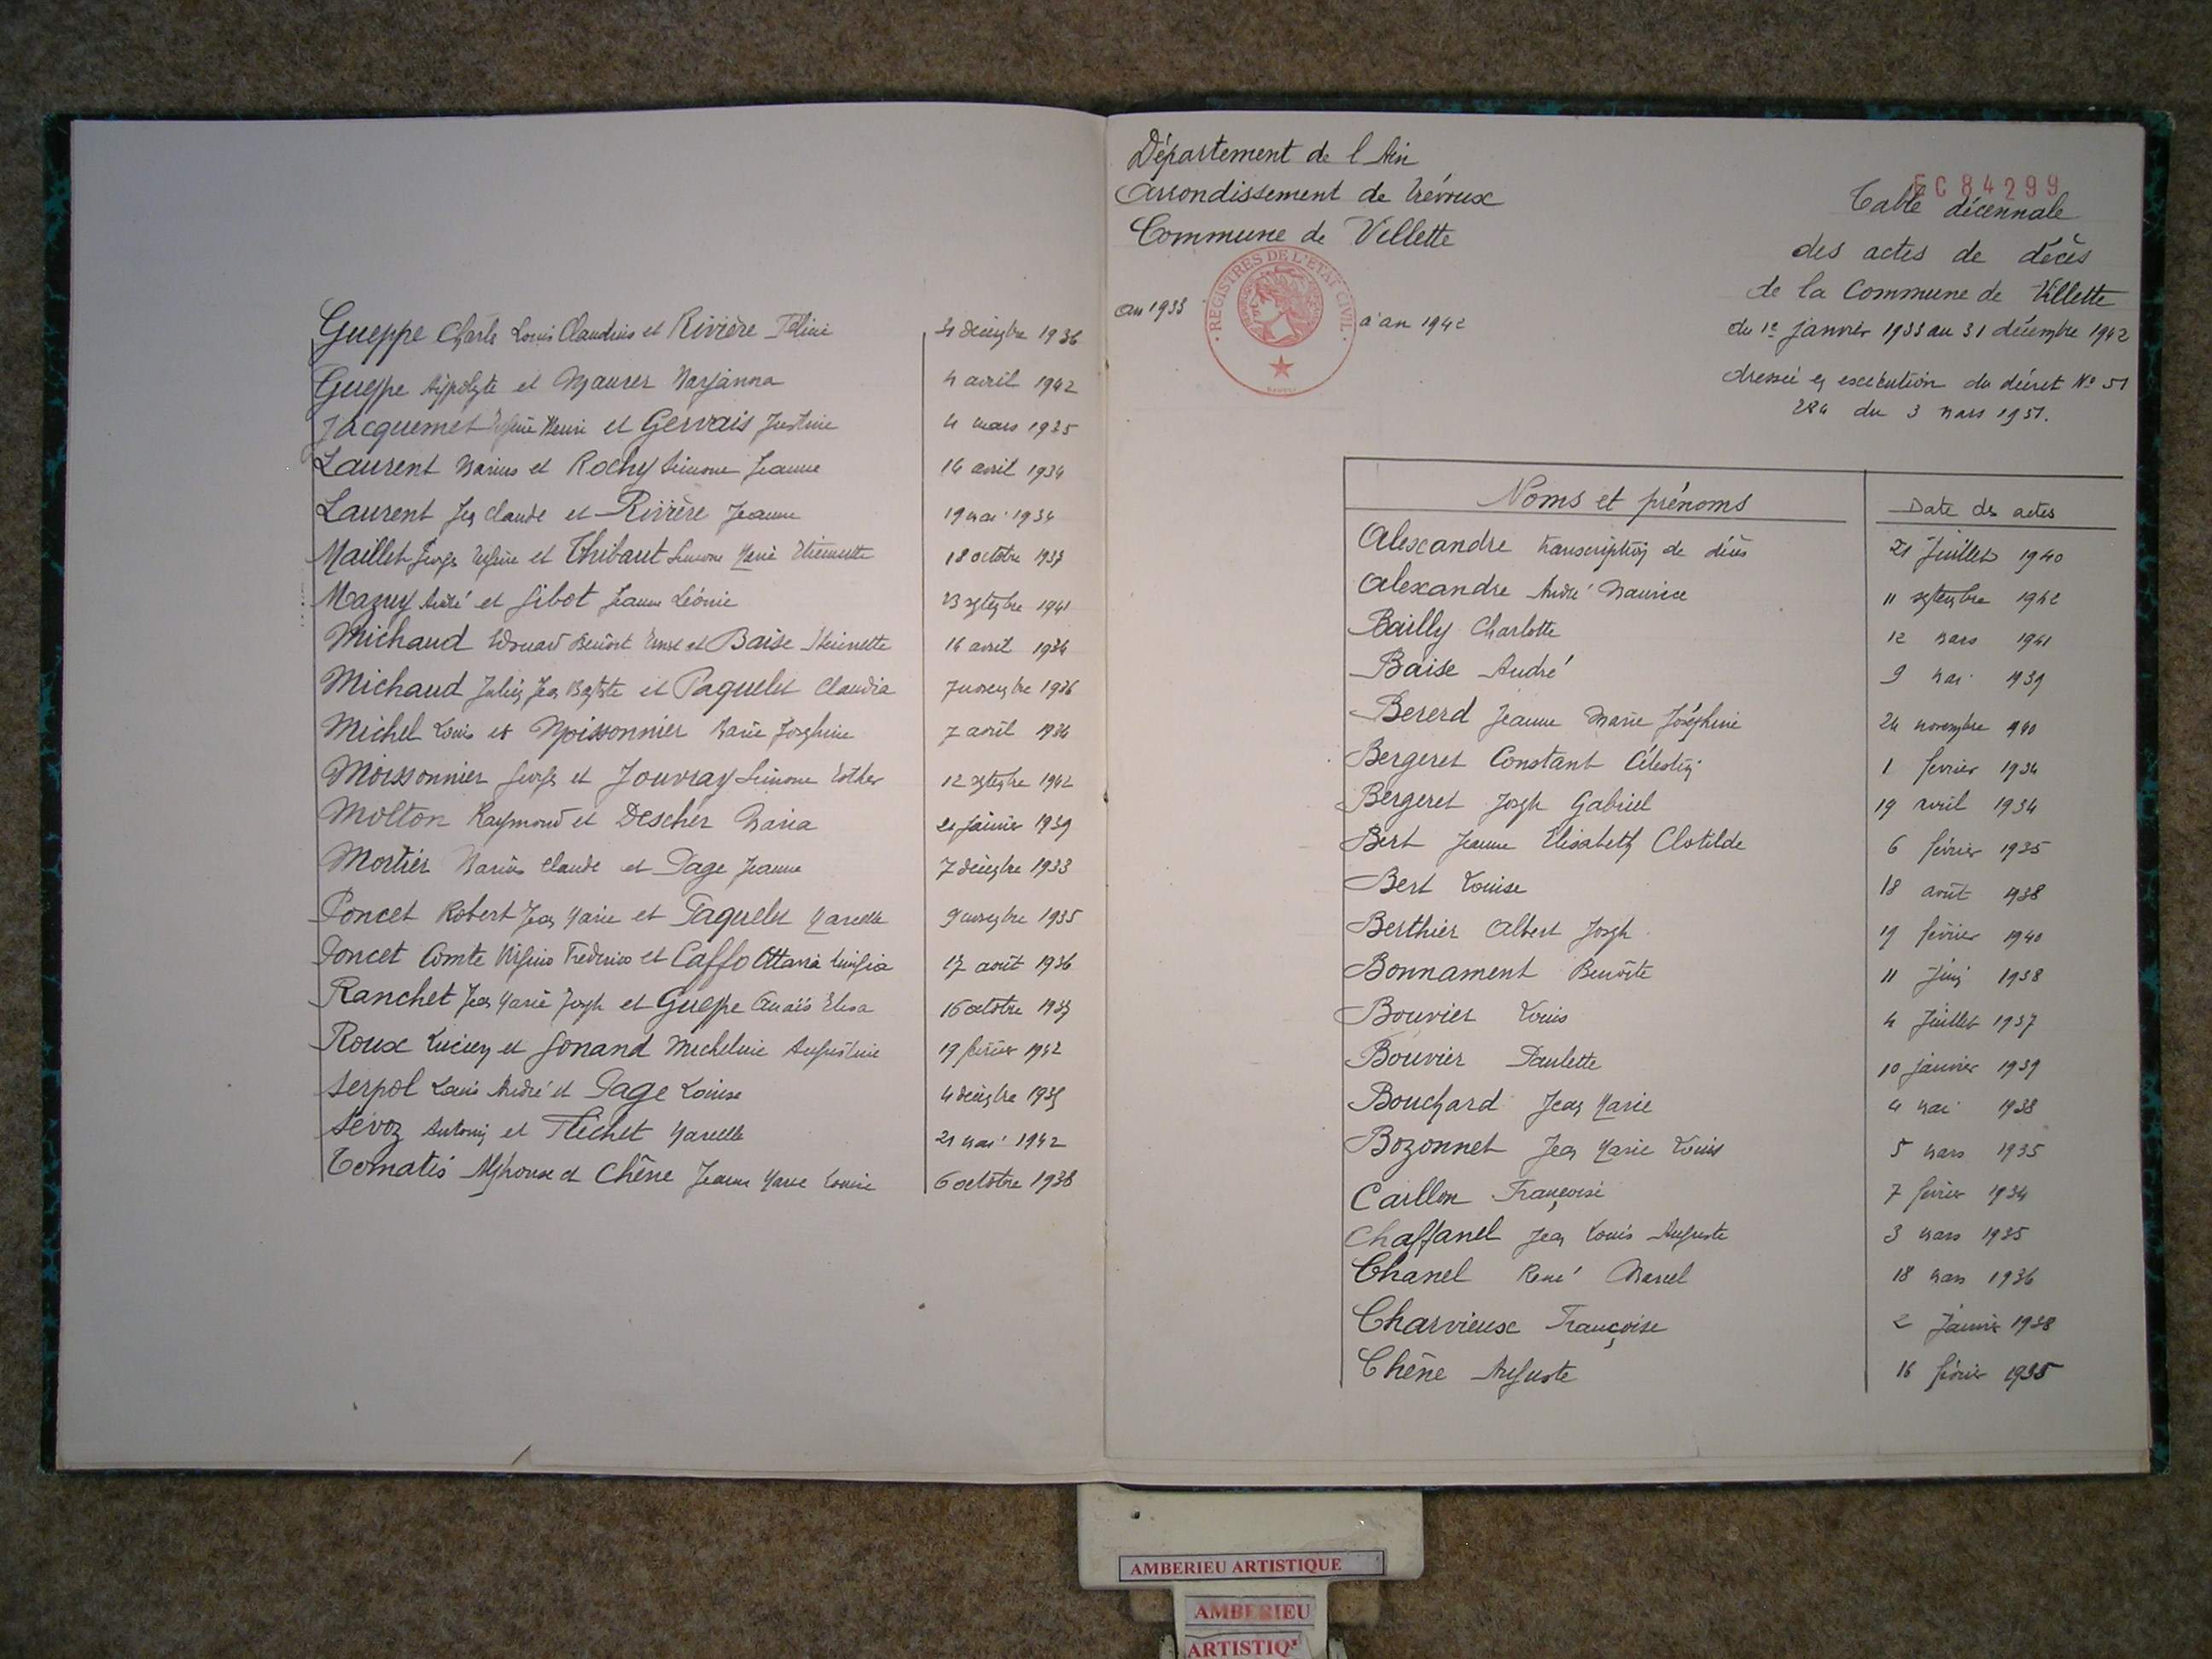 Gueppe Charles Louis Claudius et Rivière Féline 21 décembre 1936
Gueppe hippolyte et Maurer Marjanna 4 avril 1942
Jacquemet Henri et Gervais Justine 4 mars 1935
Laurent Marius et Rochy Simone Jeanne 14 avril 1934
Laurent Jean Claude et Rivière Jeanne 19 mai 1934
Maillet Georges Eugène et Thibaut Simone Marie Etiennette 18 octobre 1937
Mazuy André et Gibot Jeanne Léonie 13 septembre 1941
Michaud Edouard Benoit et Baise Etiennette 14 avril 1934
Michaud Julien Jean Baptiste et Paquelet Claudia 7 novembre 1936
Michel Louis et Moissonnier Marie Josephine 7 avril 1934
Moissonnier Georges et Jouvray Simone Esther 12 septembre 1942
Molton Raymond et Descher Maria janvier 1939
Mortier Marius Claude et Page Jeanne 7 décembre 1933
Poncet Robert Jean Marie et Paquelet Marcelle 9 novembre 1935
Poncet Comte Virginio Frederico et Caffo Ottavia 17 août 1936
Ranchet Jean Marie Joseph et Gueppe Anaïs Elisa 16 octobre
Roux Lucien et Gonand Micheline Augustine 19 février 1942
Serpol Louis André et Page Louise 4 décembre
Sevoz Antonin et Flichet Marcelle 21 mai 1942
Tomatis Alphonse et Chêne Jeanne Marie Louise 6 octobre 1938
Département de l'Ain
Arrondissement de Trévoux
Commune de Villette
REGISTRES DE L'ETAT CIVIL
an 1933 à an 1942
EC84299
Table décennale
des actes de décès
de la Commune de Villette
du 1er janvier 1933 au 31 décembre 1942
dressée en exécution du décret No 51
284 du 3 mars 1951.
Noms et prénoms Date des actes
Alexandre transcription de décès 21 Juillet 1940
Alexandre André Maurice 11 septembre 1942
Bailly Charlotte 12 mars 1941
Baise André 9 mai 1939
Bererd Jeanne Marie Joséphine 24 novembre 1940
Bergeret Constant Célestin 1 fevrier 1934
Bergeret Joseph Gabriel 19 avril 1934
Bert Jeanne Elisabeth Clotilde 6 février 1935
Bert Louise 18 août 1938
Berthier Albert Joseph 19 février 1940
Bonnament Benoîte 11 Juin 1938
Bouvier Louis 4 Juillet 1937
Bouvier Paulette 10 janvier 1939
Bouchard Jean Marie 4 mai 1938
Bozonnet Jean Marie Louis 5 mars 1935
Caillon Françoise 7 février 1934
Chaffanel Jean Louis Auguste 3 mars 1935
Chanel René Marcel 18 mars 1936
Charvieux Françoise 2 Janvier 1938
Chêne Auguste 16 février 1935
AMBERIEU ARTISTIQUE
AMBERIEU
ARTISTIQ